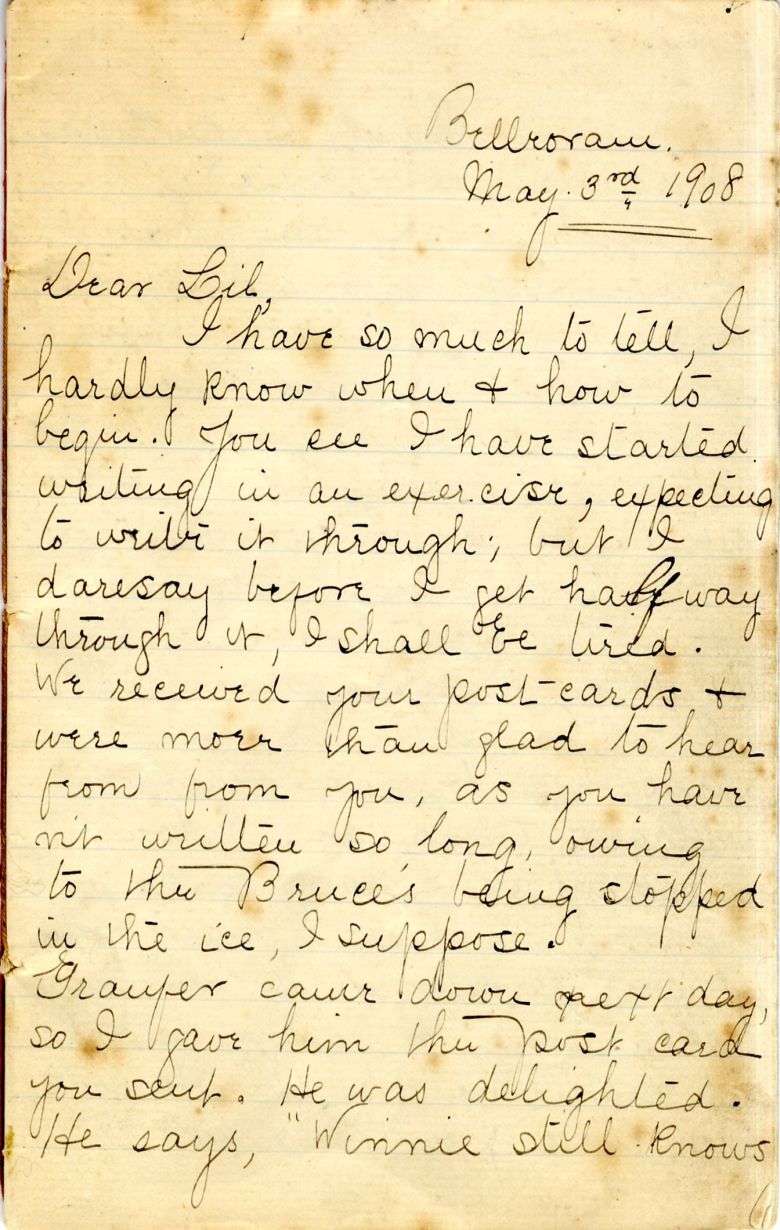 Belleoram.
May. 3rd 1908
Dear Lil,
I have so much to tell, I
hardly know when & how to
begin. You see I have started
writing in an exercise, expecting
to write it through; but I
daresay before I get half way
through it, I shall be tired.
We received your post-cards &
were more than glad to hear
from from you, as you have
n't written so long, owing
to the Bruce's being stopped
in the ice, I suppose.
Granfer came down next day,
so I gave him the post card
you sent. He was delighted.
He says, "Winnie still knows